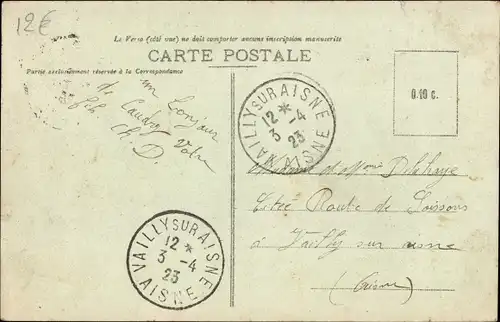 12€
Le Verso (côté vue) ne doit comporter aucune inscription manuscrite
CARTE POSTALE
Partie exclusivement réservée à la Correspondance
0.10 c.
un bonjour
de Caudry Votre
fils Ch. D.
VAILLY SUR AISNE
12 *
3 -4
23
AISNE
Madame et Delahaye
Route de Soissons
à Vailly sur aisne
(Aisne)
VAILLY SUR AISNE
12 *
3 -4
23
AISNE